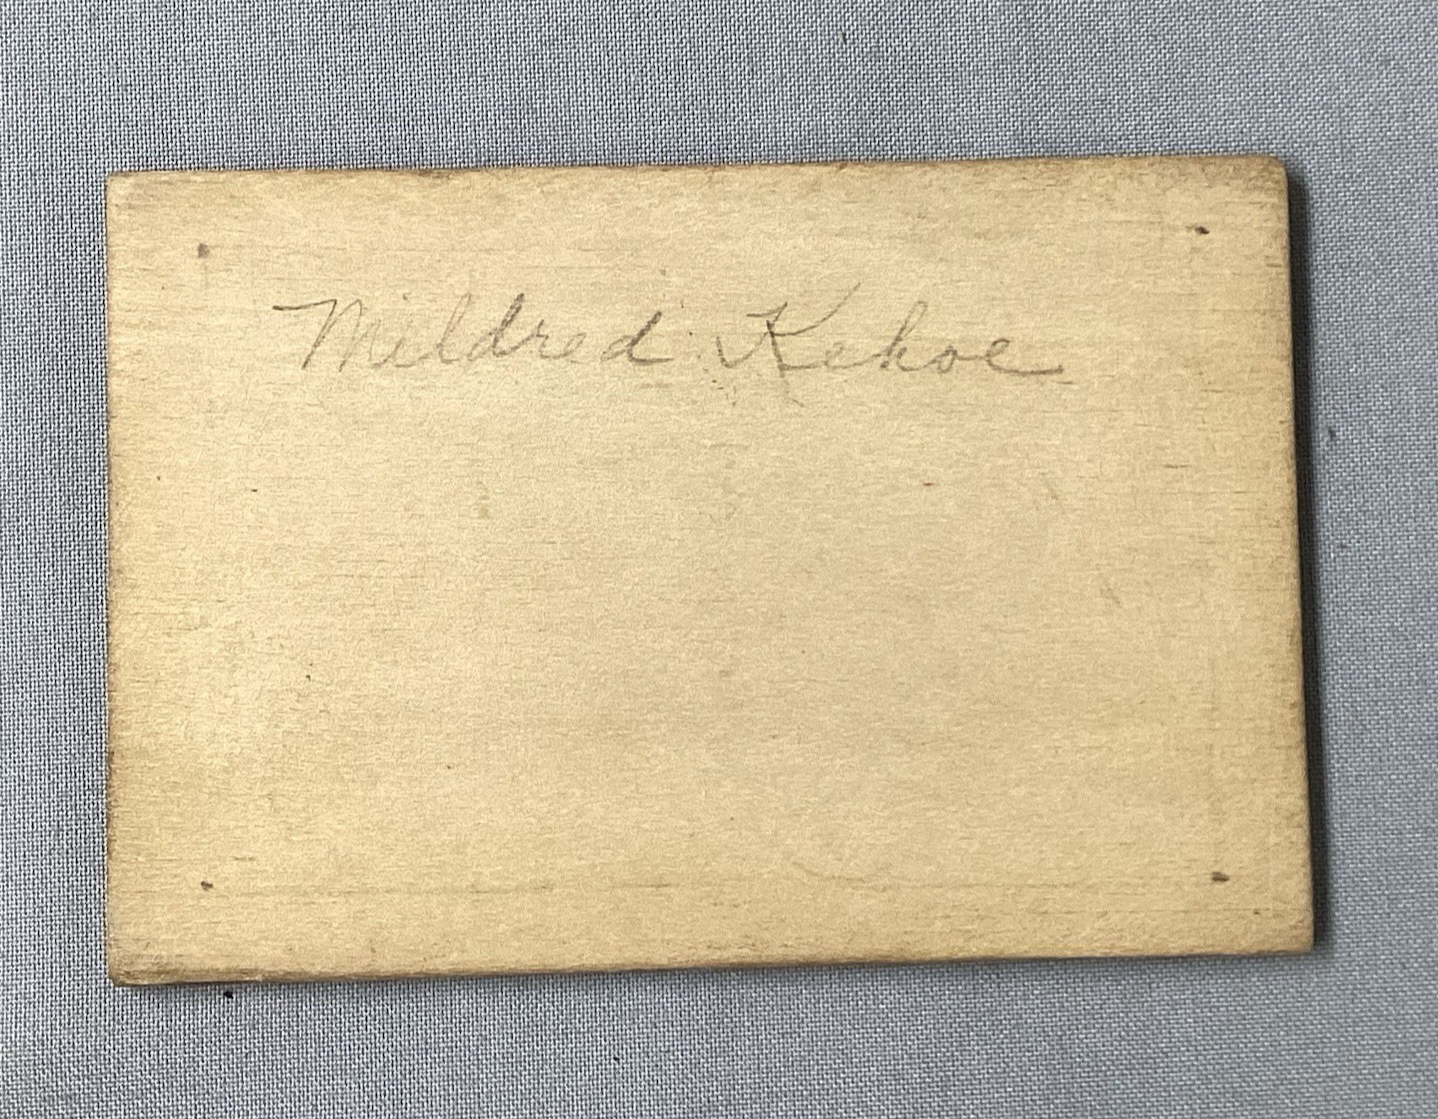 Mildred Kehoe